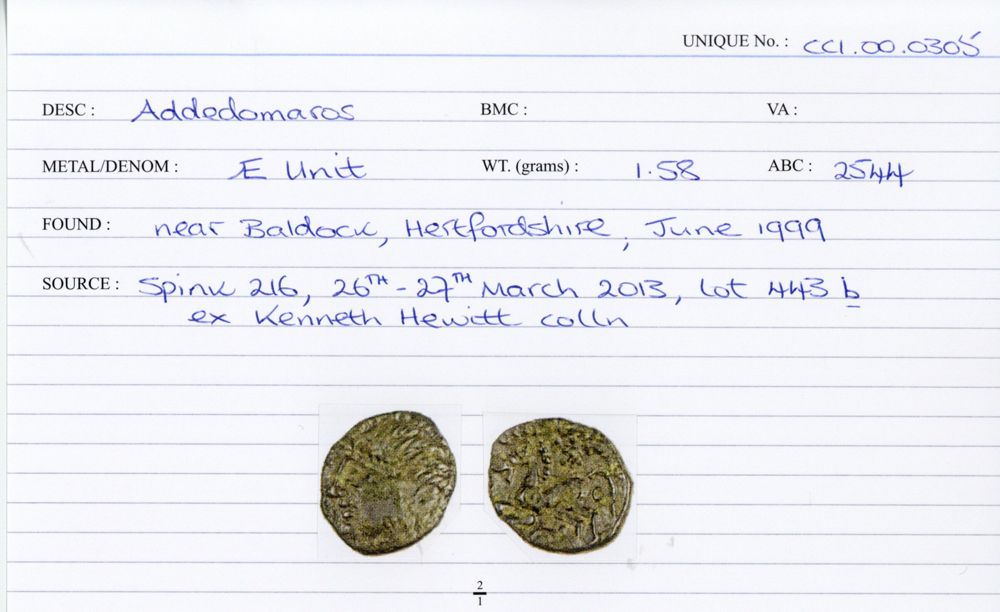 UNIQUE No. : CCI.00.0305
DESC : Addedomaros BMC : VA :
METAL/DENOM : Æ Unit WT. (grams) : 1.58 ABC : 2544
FOUND : near Baldock, Hertfordshire, June 1999
SOURCE : Spink 216, 26TH - 27TH March 2013, lot 443 b
ex Kenneth Hewitt colln
2
1